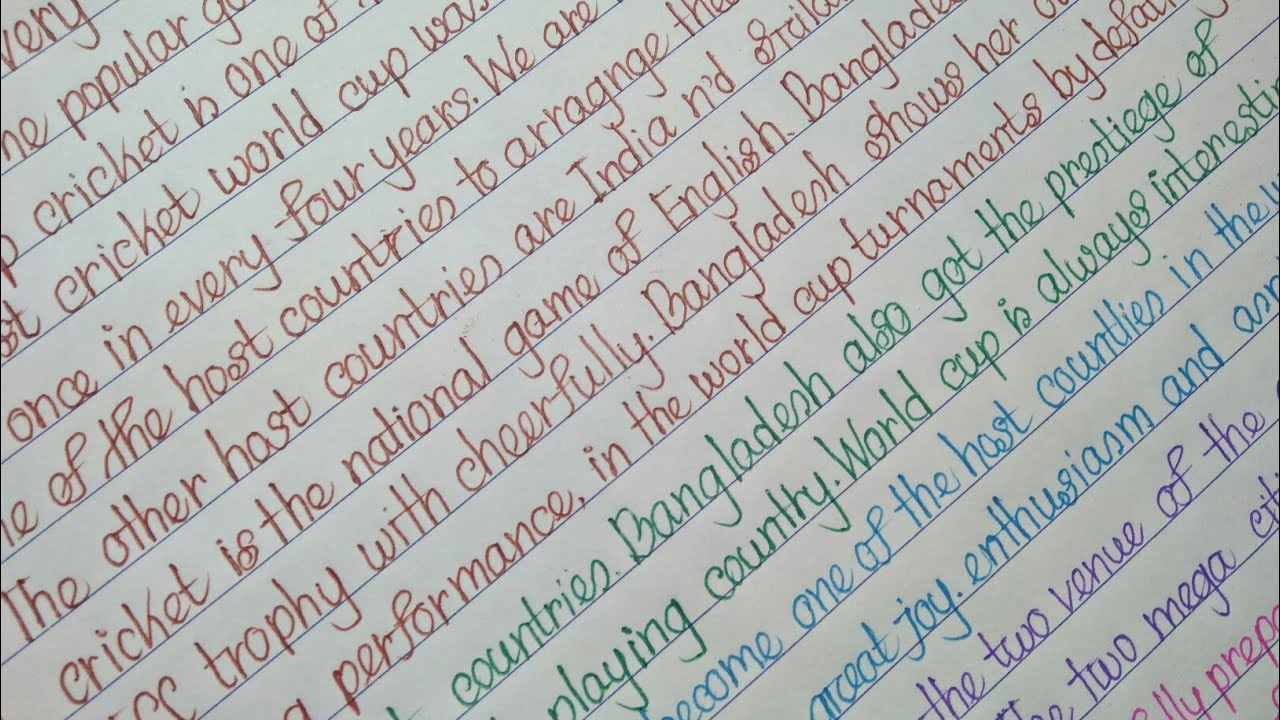 very
popular
cricket is one of
cricket world cup was
once in every four years. We are
of the host countries to arragnge the
The other hast countries are India n'd
cricket is the national game of English.
trophy with cheerfully. Bangladesh shows her
performance, in the world cup turnaments by
countries. Bangladesh also got the prestiege of
playing counthy. World cup is always
one of the hast countlies in the
joy. enthusiasm and
the two venue of the
two mega